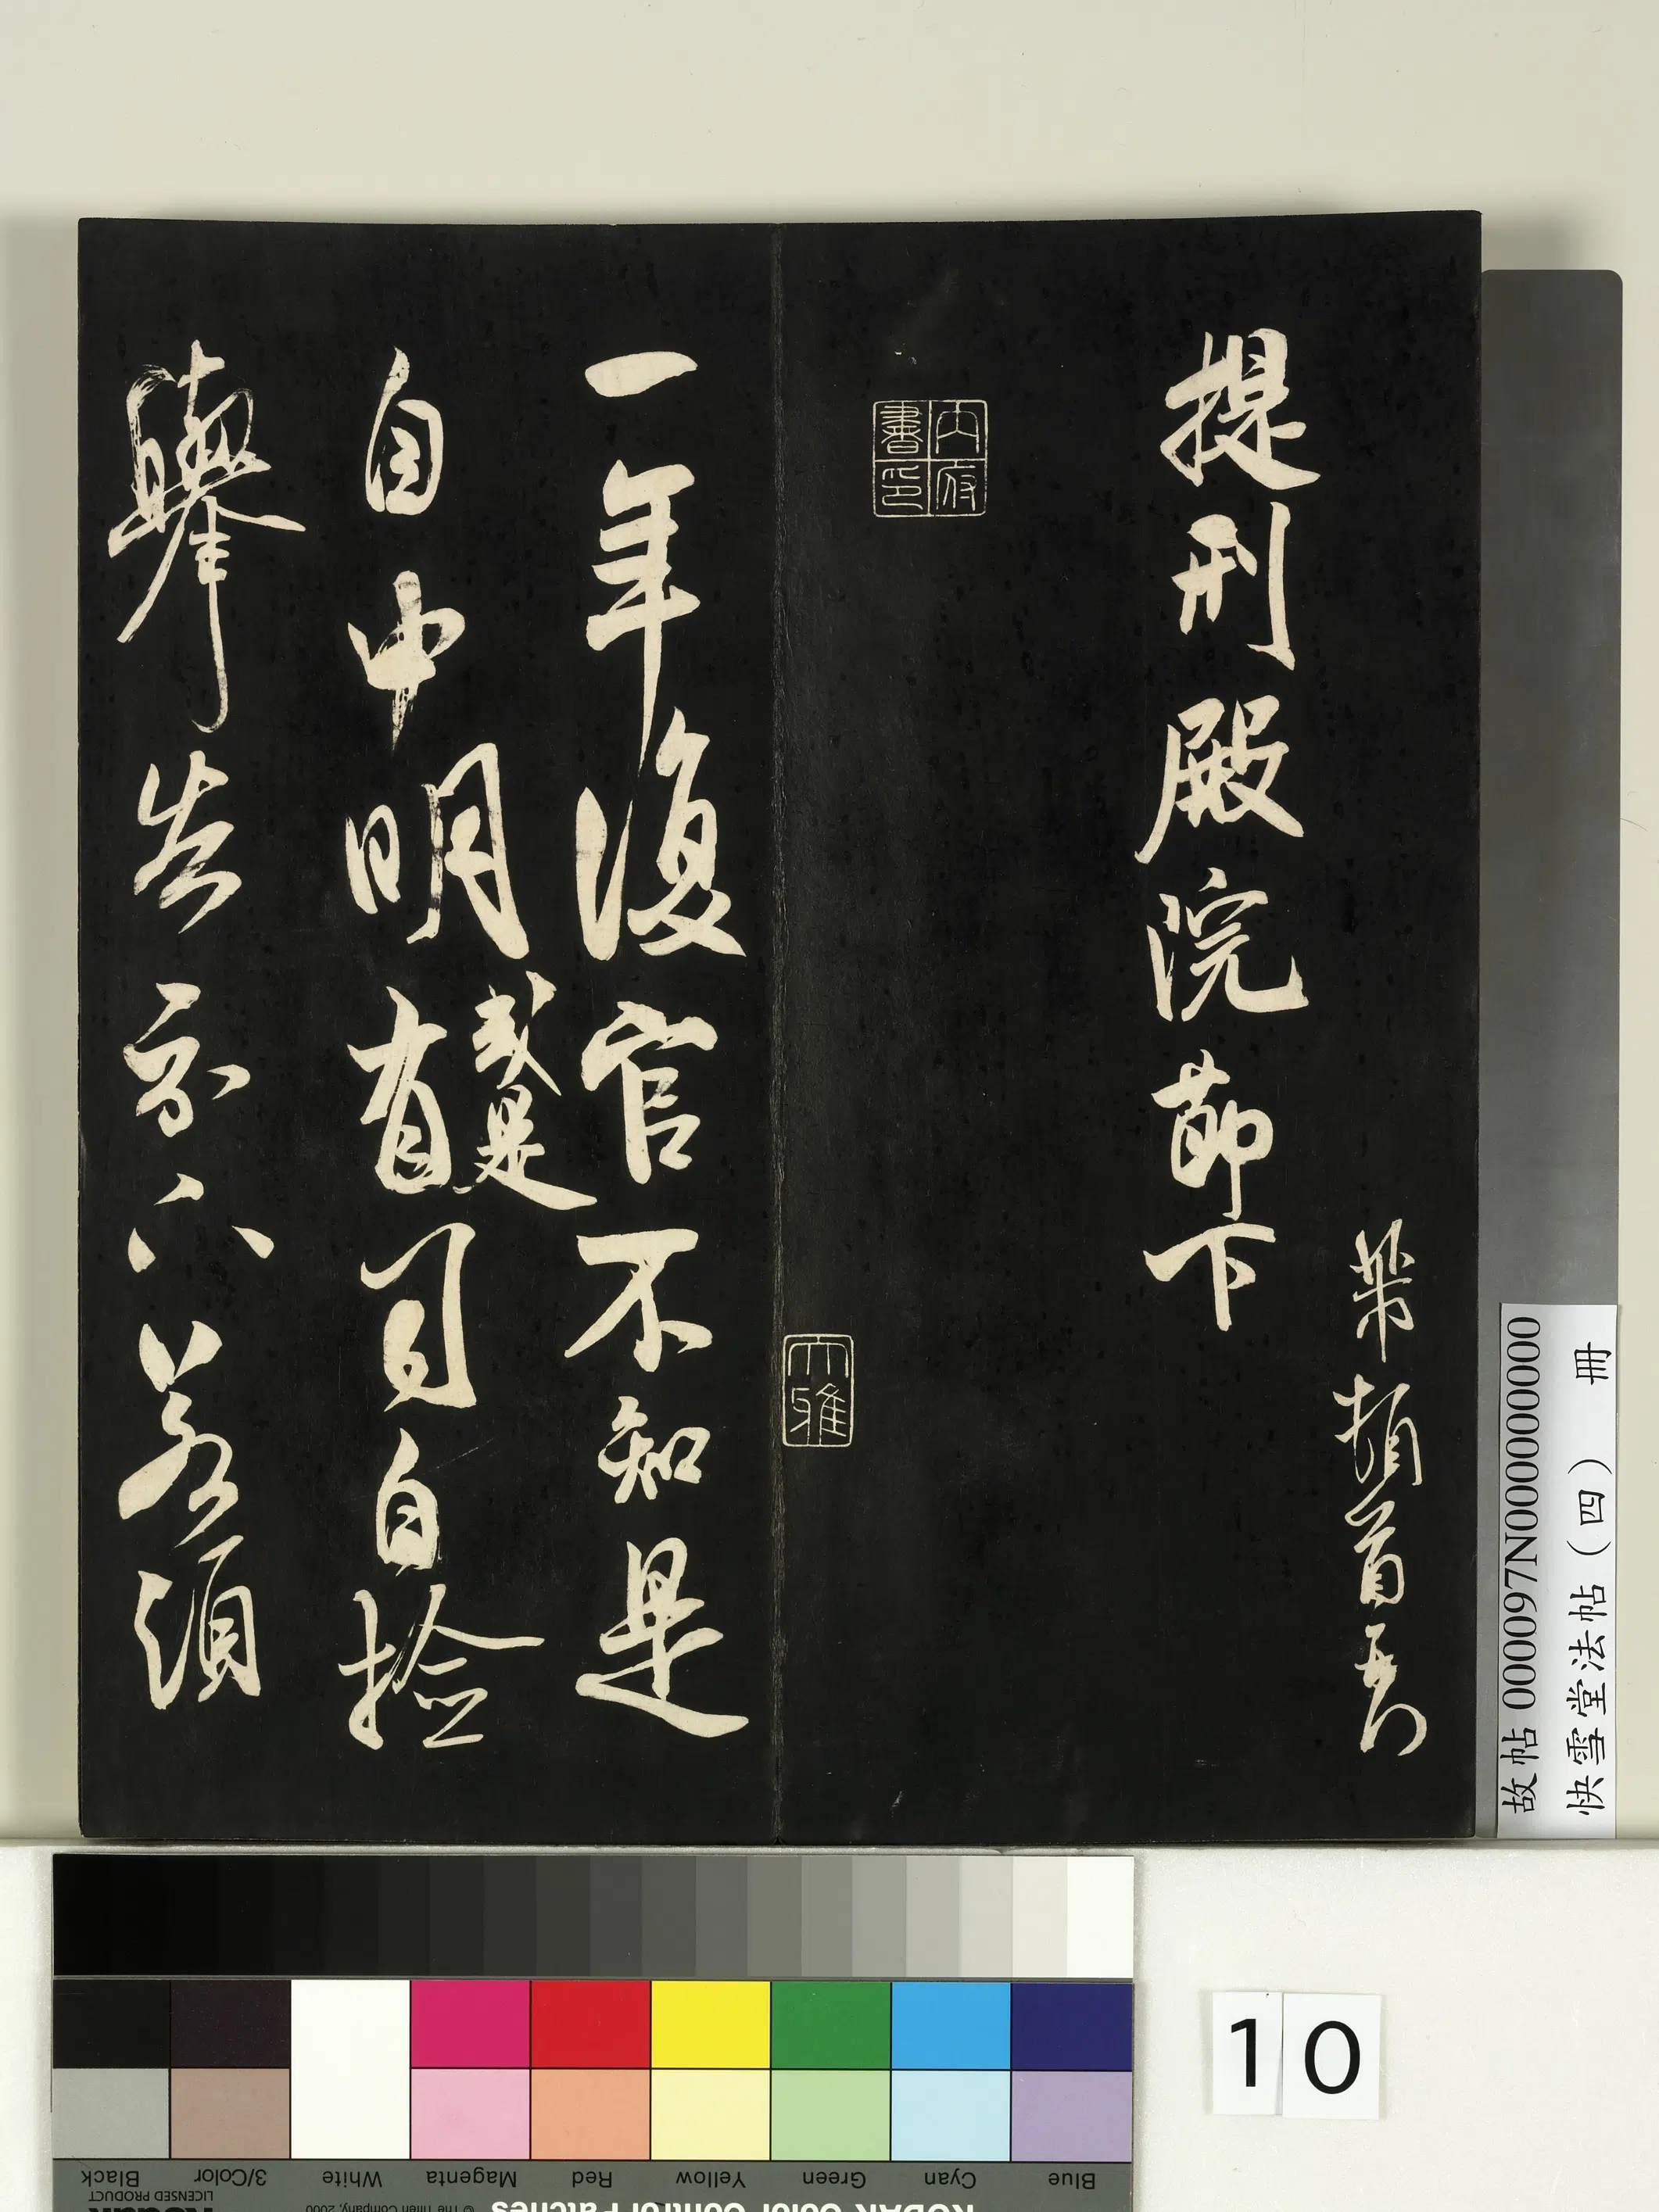 芾頓首再拜
提刑殿院節下
內府書印
大雅
一年復官不知是
或是
自申明有司自撿
舉告示下若須
故帖 000097N000000000
快雪堂法帖（四） 冊
10
Blue Cyan Green Yellow Red Magenta White 3/Color Black
KODAK Color Control Patches
© The Tiffen Company, 2000
LICENSED PRODUCT